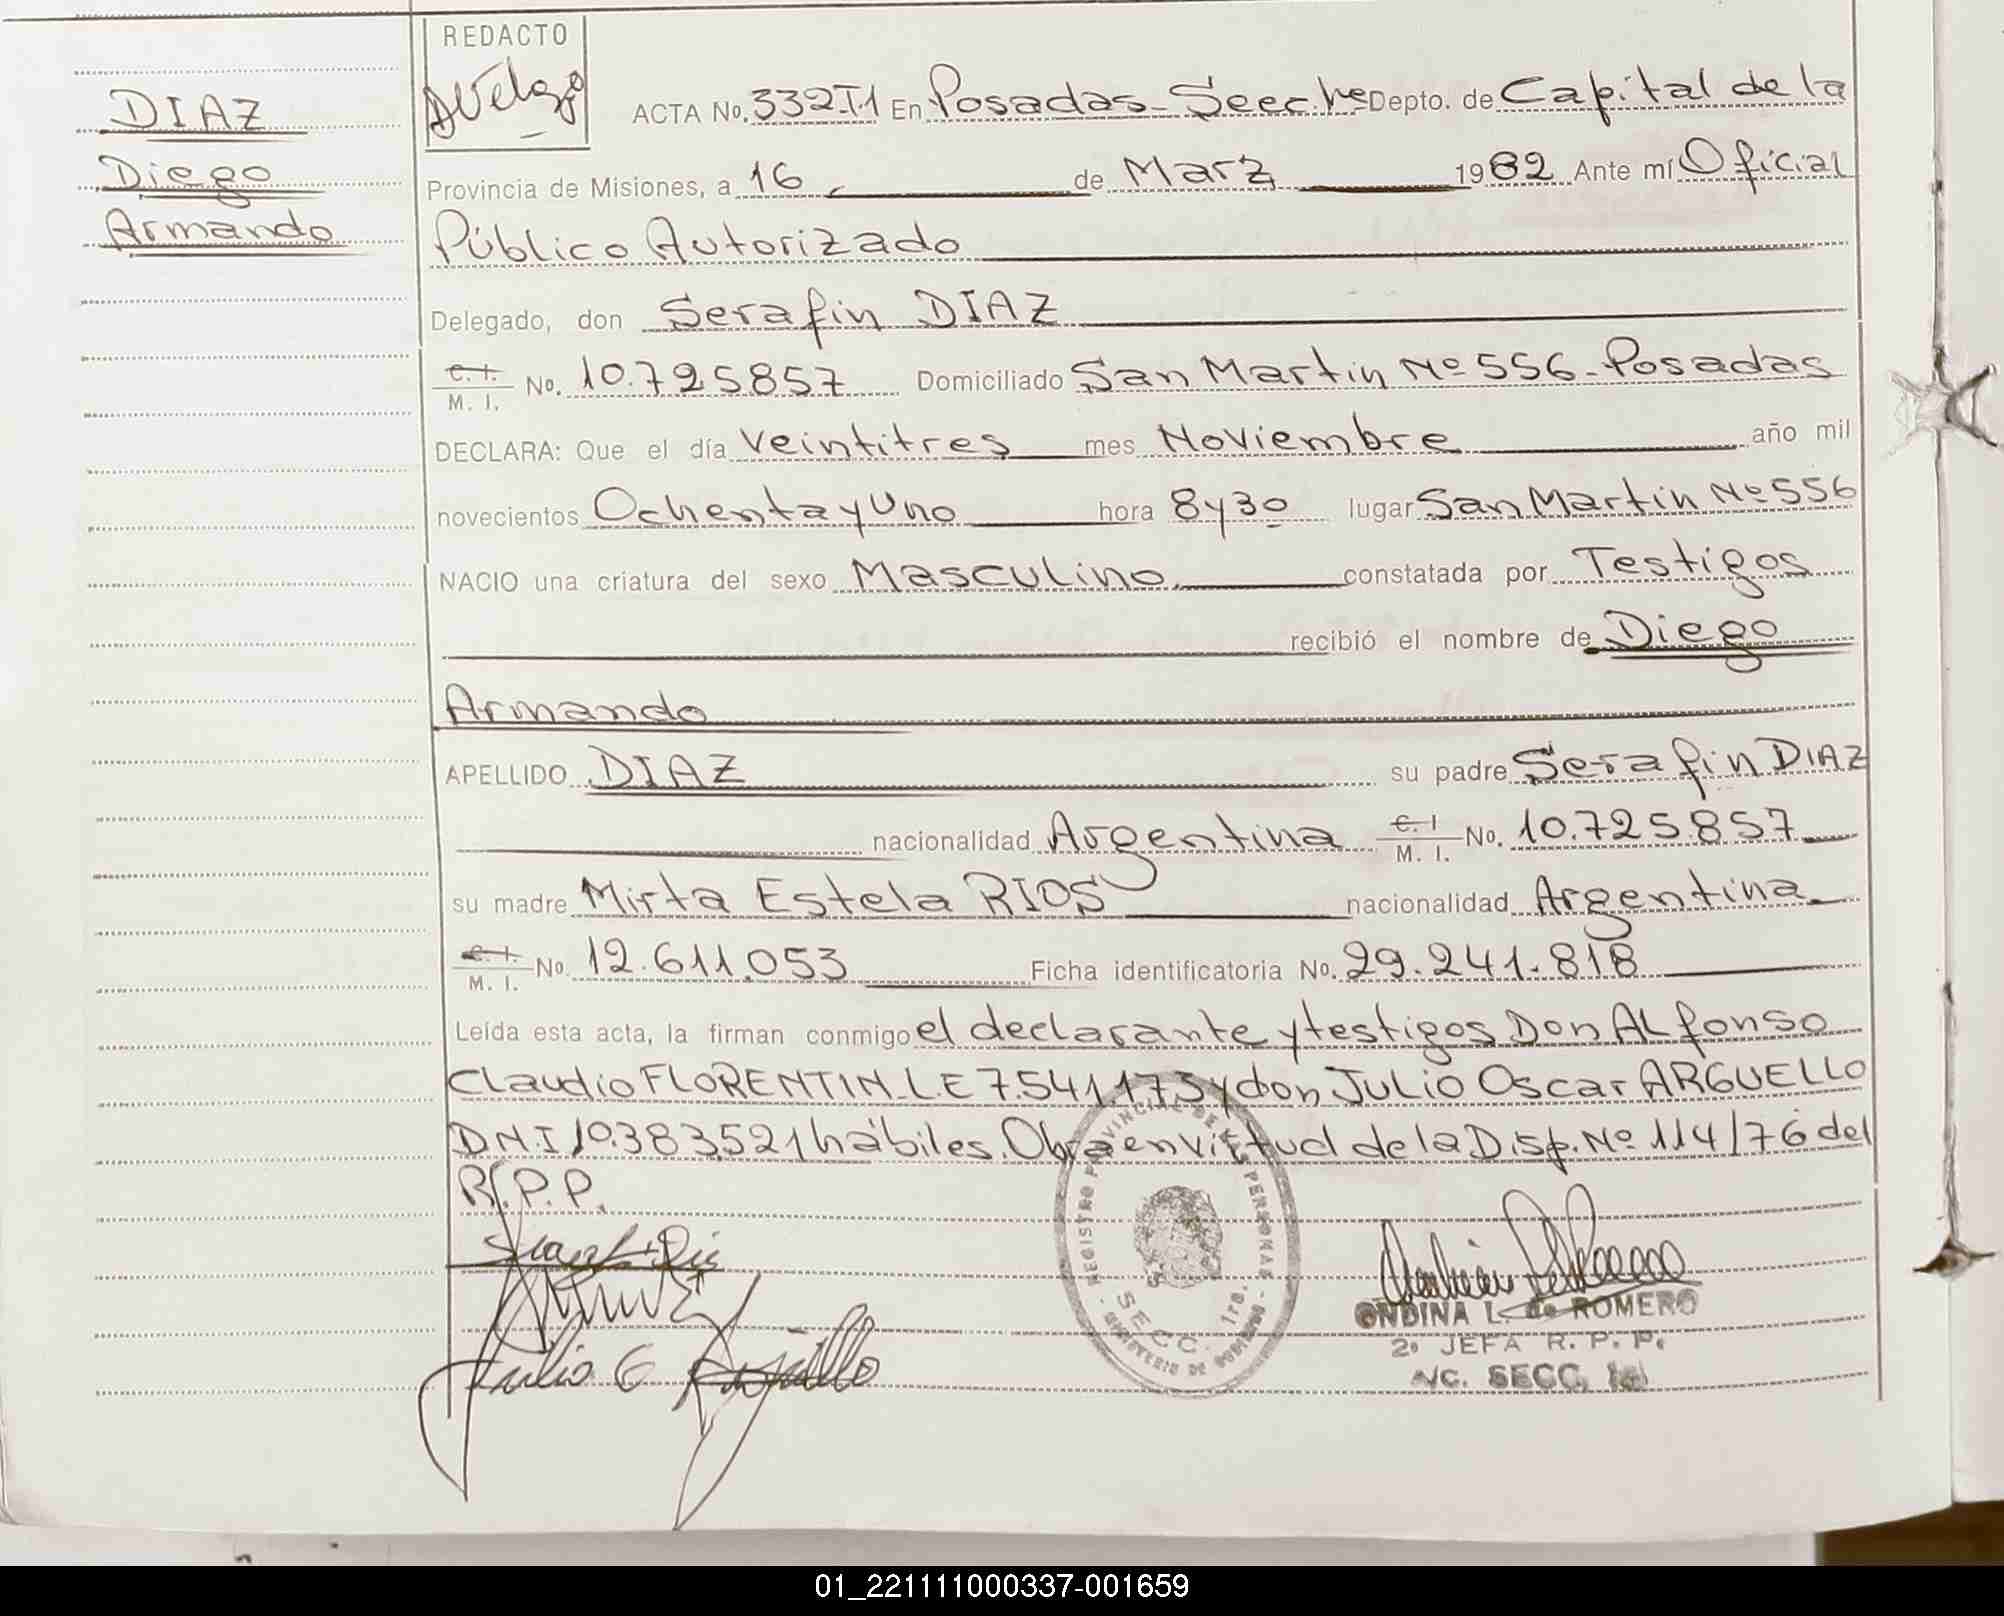 REDACTO
DIAZ
Diego
Armando
ACTA No. 332-T.1 En Posadas- Secc. 1ra Depto. de Capital de la
Provincia de Misiones, a 16 de Marz 1982 Ante mí Oficial
Público Autorizado
Delegado, don Serafin DIAZ
C. I. M. I. No. 10.725857 Domiciliado San Martin Nº 556-Posadas
DECLARA: Que el día veintitres mes Noviembre año mil
novecientos Ochenta y Uno hora 8y30 lugar San Martin Nº 556
NACIO una criatura del sexo Masculino constatada por Testigos
recibió el nombre de Diego
Armando
APELLIDO DIAZ su padre Serafin DIAZ
nacionalidad Argentina C. I M. I. No. 10.725.857
su madre Mirta Estela RIOS nacionalidad Argentina
C. I. M. I. No. 12.611.053 Ficha identificatoria No. 29.241.818
Leída esta acta, la firman conmigo el declarante y testigos Don ALfonso
Claudio FLORENTIN L.E 7.541.173 y don JULIO Oscar ARGUELLO
D.N.I 10.383.521 hábiles. Obra en virtud de la Disp. Nº 114/76 del
R.P.P.
REGISTRO PROVINCIAL DE LAS PERSONAS
SECC. 1ra.
MINISTERIO DE GOBIERNO
ONDINA L. de ROMERO
2º JEFA R. P. P.
A/C. SECC. 1ª
01_221111000337-001659